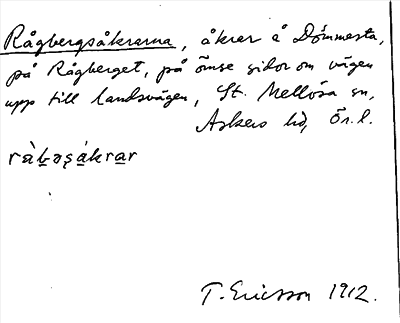 Rågbergsåkrarna, åkrar å Dömmesta,
på Rågberget, på ömse sidor om vägen
upp till landsvägen, St. Mellösa sn,
Askers hd, Ör. l.
T. Ericsson 1912.